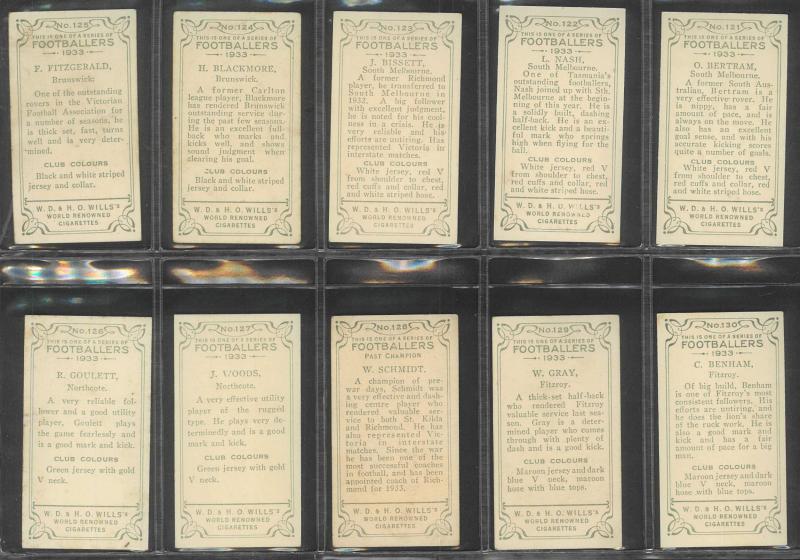 No. 125
THIS IS ONE OF A SERIES OF
FOOTBALLERS
1933
F. FITZGERALD,
Brunswick:
One of the outstanding
rovers in the Victorian
Football Association for
a number of seasons, he
is thick set, fast, turns
well and is very deter-
mined.
CLUB COLOURS
Black and white striped
jersey and collar.
W. D. & H. O. WILLS's
WORLD RENOWNED
CIGARETTES
No. 124
THIS IS ONE OF A SERIES OF
FOOTBALLERS
1933
H. BLACKMORE,
Brunswick.
A former Carlton
league player, Blackmore
has rendered Brunswick
outstanding service dur-
ing the past few seasons.
He is an excellent full-
back who marks and
kicks well, and shows
sound judgment when
clearing his goal.
CLUB COLOURS
Black and white striped
jersey and collar.
W. D. & H. O. WILLS's
WORLD RENOWNED
CIGARETTES
No. 123
THIS IS ONE OF A SERIES OF
FOOTBALLERS
1933
J. BISSETT,
South Melbourne.
A former Richmond
player, he transferred to
South Melbourne in
1932. A big follower
with excellent judgment,
he is noted for his cool-
ness in a crisis. He is
very reliable and his
efforts are untiring. Has
represented Victoria in
interstate matches.
CLUB COLOURS
White jersey, red V
from shoulder to chest,
red cuffs and collar, red
and white striped hose.
W. D. & H. O. WILLS's
WORLD RENOWNED
CIGARETTES
No. 122
THIS IS ONE OF A SERIES OF
FOOTBALLERS
1933
L. NASH,
South Melbourne.
One of Tasmania's
outstanding footballers,
Nash joined up with Sth.
Melbourne at the begin-
ning of this year. He is
a solidly built, dashing
half-back. He is an ex-
cellent kick and a beauti-
ful mark who springs
high when flying for the
ball.
CLUB COLOURS
White jersey, red V
from shoulder to chest,
red cuffs and collar, red
and white striped hose.
W. D. & H. O. WILLS's
WORLD RENOWNED
CIGARETTES
No. 121
THIS IS ONE OF A SERIES OF
FOOTBALLERS
1933
O. BERTRAM,
South Melbourne.
A former South Aus-
tralian, Bertram is a very
effective rover. He
is nippy, has a fair
amount of pace, and is
always on the move. He
also has an excellent
goal sense, and with his
accurate kicking scores
quite a number of goals.
CLUB COLOURS
White jersey, red V
from shoulder to chest,
red cuffs and collar, red
and white striped hose.
W. D. & H. O. WILLS's
WORLD RENOWNED
CIGARETTES
No. 126
THIS IS ONE OF A SERIES OF
FOOTBALLERS
1933
R. GOULETT,
Northcote.
A very reliable fol-
lower and a good utility
player, Goulett plays
the game fearlessly and
is a good mark and kick.
CLUB COLOURS
Green jersey with gold
V neck.
W. D. & H. O. WILLS's
WORLD RENOWNED
CIGARETTES
No. 127
THIS IS ONE OF A SERIES OF
FOOTBALLERS
1933
J. WOODS,
Northcote.
A very effective utility
player of the rugged
type. He plays very de-
terminedly and is a good
mark and kick.
CLUB COLOURS
Green jersey with gold
V neck.
W. D. & H. O. WILLS's
WORLD RENOWNED
CIGARETTES
No. 128
THIS IS ONE OF A SERIES OF
FOOTBALLERS
PAST CHAMPION
W. SCHMIDT.
A champion of pre-
war days, Schmidt was
a very effective and dash-
ing centre player who
rendered valuable ser-
vice to both St. Kilda
and Richmond. He has
also represented Vic-
toria in interstate
matches. Since the war
he has been one of the
most successful coaches
in football, and has been
appointed coach of Rich-
mond for 1933.
W. D. & H. O. WILLS's
WORLD RENOWNED
CIGARETTES
No. 129
THIS IS ONE OF A SERIES OF
FOOTBALLERS
1933
W. GRAY,
Fitzroy.
A thick-set half-back
who rendered Fitzroy
valuable service last sea-
son. Gray is a deter-
mined player who comes
through with plenty of
dash and is a good kick.
CLUB COLOURS
Maroon jersey and dark
blue V neck, maroon
hose with blue tops.
W. D. & H. O. WILLS's
WORLD RENOWNED
CIGARETTES
No. 130
THIS IS ONE OF A SERIES OF
FOOTBALLERS
1933
C. BENHAM,
Fitzroy.
Of big build, Benham
is one of Fitzroy's most
consistent followers. His
efforts are untiring, and
he does the lion's share
of the ruck work. He is
also a good mark and
kick and has a fair
amount of pace for a big
man.
CLUB COLOURS
Maroon jersey and dark
blue V neck, maroon
hose with blue tops.
W. D. & H. O. WILLS's
WORLD RENOWNED
CIGARETTES